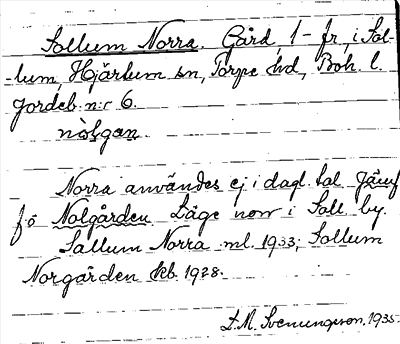 Sollum Norra. Gård, 1- fr, i Sol-
-lum, Hjärtum sn, Torpe hd, Boh. l.
Jordeb. n:r 6.
nòlgan.
Norra användes ej i dagl. tal. Jämf
fö Nolgården Läge norr i Soll. by.
Sallum Norra ml. 1933; Sollum
Norgården kb. 1928.
D.M. Svenungsson, 1935.